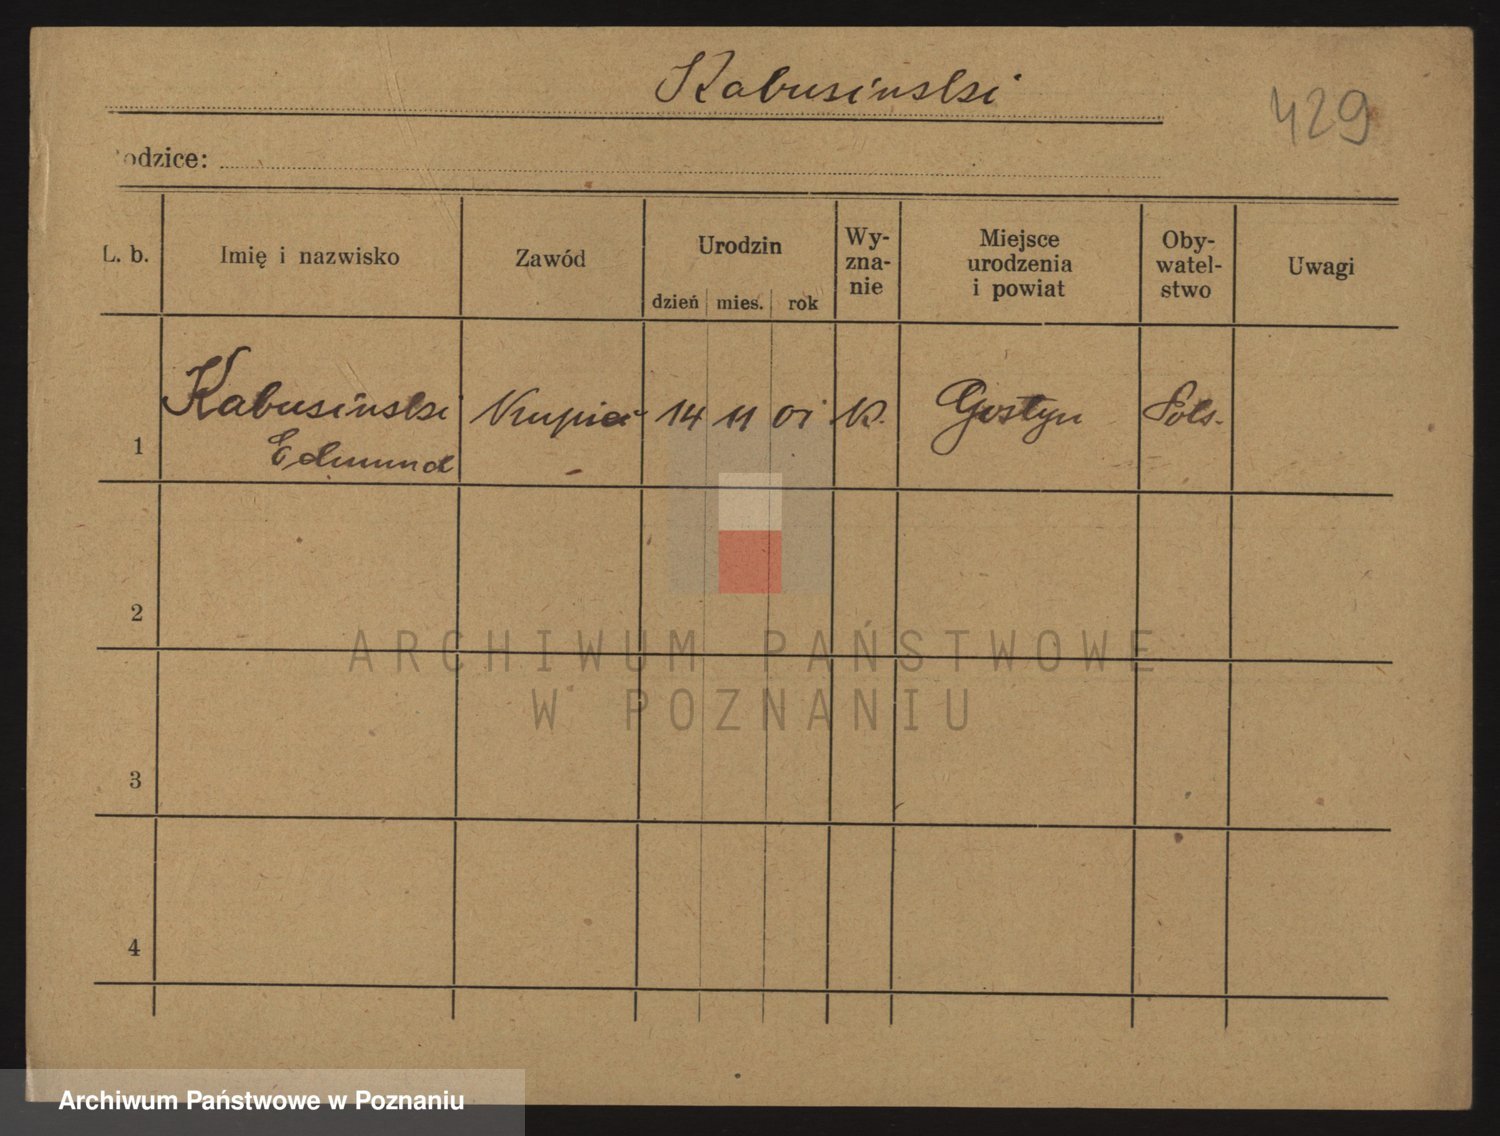 Kabusinski
429
odzice:
L. b.
Imię i nazwisko
Zawód
Urodzin
dzień mies. rok
Wy-
zna-
nie
Miejsce
urodzenia
i powiat
Oby-
watel-
stwo
Uwagi
1
Kabusinski
Edmund
Kupiec
14 11 01
K.
Gostyn
Pols.
2
3
4
ARCHIWUM PAŃSTWOWE
W POZNANIU
Archiwum Państwowe w Poznaniu